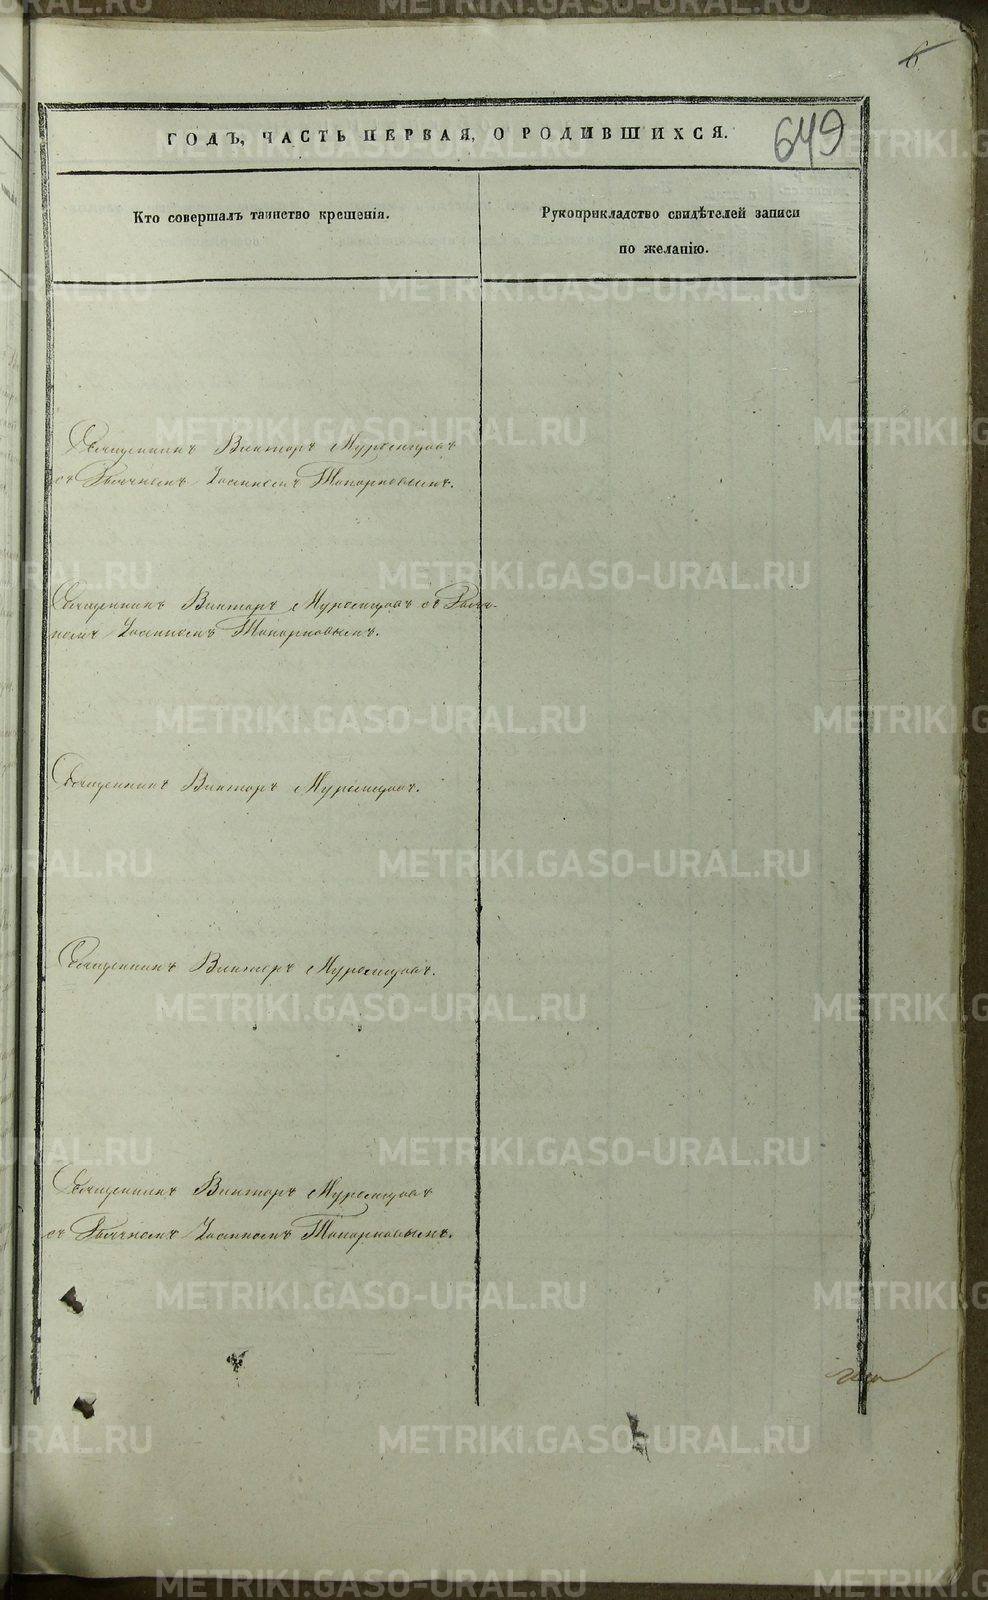 6
ГОДЪ, ЧАСТЬ ПЕРВАЯ, О РОДИВШИХСЯ.
649
Кто совершалъ таинство крещенія.
Рукоприкладство свидѣтелей записи
по желанію.
Священникъ Викторъ Муромцовъ
съ Дьячкомъ Іоанномъ Топорковымъ.
Священникъ Викторъ Муромцовъ съ Дьяч-
комъ Іоанномъ Топорковымъ.
Священникъ Викторъ Муромцовъ.
Священникъ Викторъ Муромцовъ.
Священникъ Викторъ Муромцовъ
съ Дьячкомъ Іоанномъ Топорковымъ.
METRIKI.GASO-URAL.RU